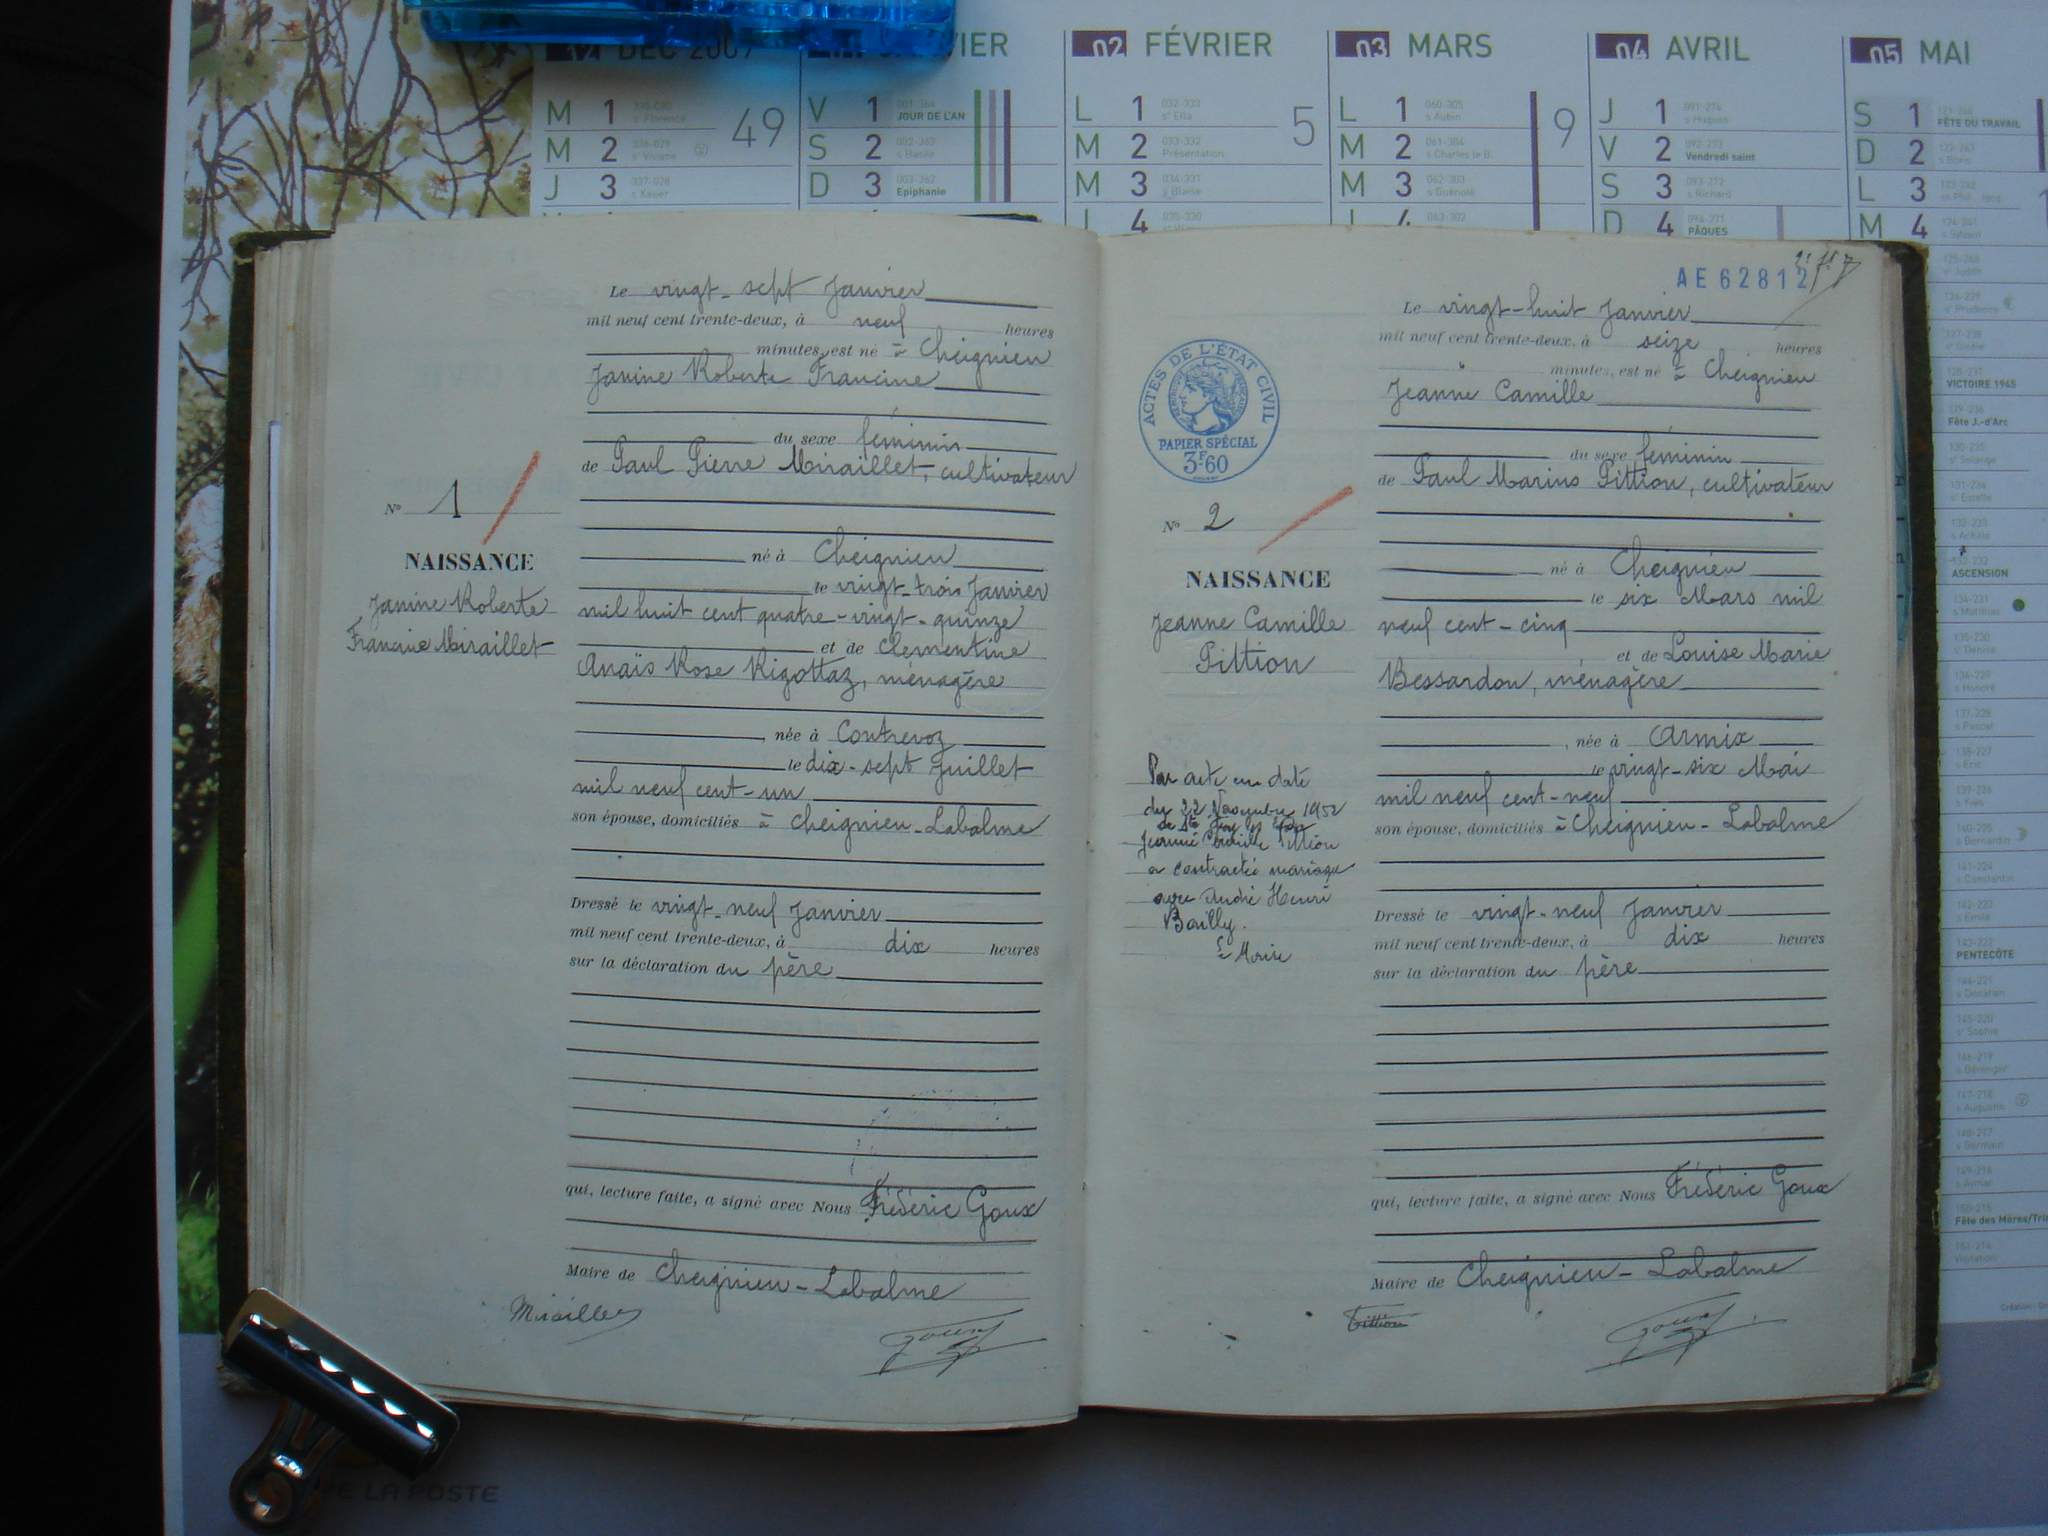 DEC 2009
VIER
02 FÉVRIER
03 MARS
04 AVRIL
05 MAI
M 1 49
M 2
J 3
V 1 JOUR DE L'AN
S 2 s Basile
D 3 Epiphanie
L 1 5
M 2 Présentation
M 3 s Blaise
J 4
L 1 s Aubin 9
M 2 s Charles le B.
M 3 s Guénolé
J 4
J 1 s Hugues
V 2 Vendredi saint
S 3 s Richard
D 4 PÂQUES
S 1 FÊTE DU TRAVAIL
D 2 s Boris
L 3
M 4 s Sylvain
VICTOIRE 1945
Fête J.-d'Arc
ASCENSION
PENTECÔTE
Fête des Mères/Tri
Le vingt-sept Janvier
mil neuf cent trente-deux, à neuf heures
minutes, est né à Cheignieu
Janine Roberte Francine
du sexe féminin
de Paul Pierre Miraillet, cultivateur
N° 1
NAISSANCE
Janine Roberte
Francine Miraillet
né à Cheignieu
le vingt-trois Janvier
mil huit cent quatre-vingt-quinze
et de Clémentine
Anaïs Rose Rigottaz, ménagère
, née à Contrevoz
le dix-sept Juillet
mil neuf cent-un
son épouse, domiciliés à Cheignieu-Labalme
Dressé le vingt-neuf Janvier
mil neuf cent trente-deux, à dix heures
sur la déclaration du père
qui, lecture faite, a signé avec Nous Frédéric Goux
Maire de Cheignieu-Labalme
Miraillet
Goux
AE 62812
Le vingt-huit Janvier
mil neuf cent trente-deux, à seize heures
minutes, est né à Cheignieu
Jeanne Camille
ACTES DE L'ÉTAT CIVIL
RÉPUBLIQUE FRANÇAISE
PAPIER SPÉCIAL
3F60
du sexe féminin
de Paul Marius Pittion, cultivateur
N° 2
NAISSANCE
Jeanne Camille
Pittion
né à Cheignieu
le six Mars mil
neuf cent-cinq
et de Louise Marie
Bessardon, ménagère
, née à Armix
le vingt-six Mai
mil neuf cent-neuf
son épouse, domiciliés à Cheignieu-Labalme
Par acte en date
du 22 Novembre 1952
de Ste Foy les Lyon
Jeanne Camille Pittion
a contracté mariage
avec André Henri
Bailly.
Le Maire
Dressé le vingt-neuf Janvier
mil neuf cent trente-deux, à dix heures
sur la déclaration du père
qui, lecture faite, a signé avec Nous Frédéric Goux
Maire de Cheignieu-Labalme
Pittion
Goux
LA POSTE